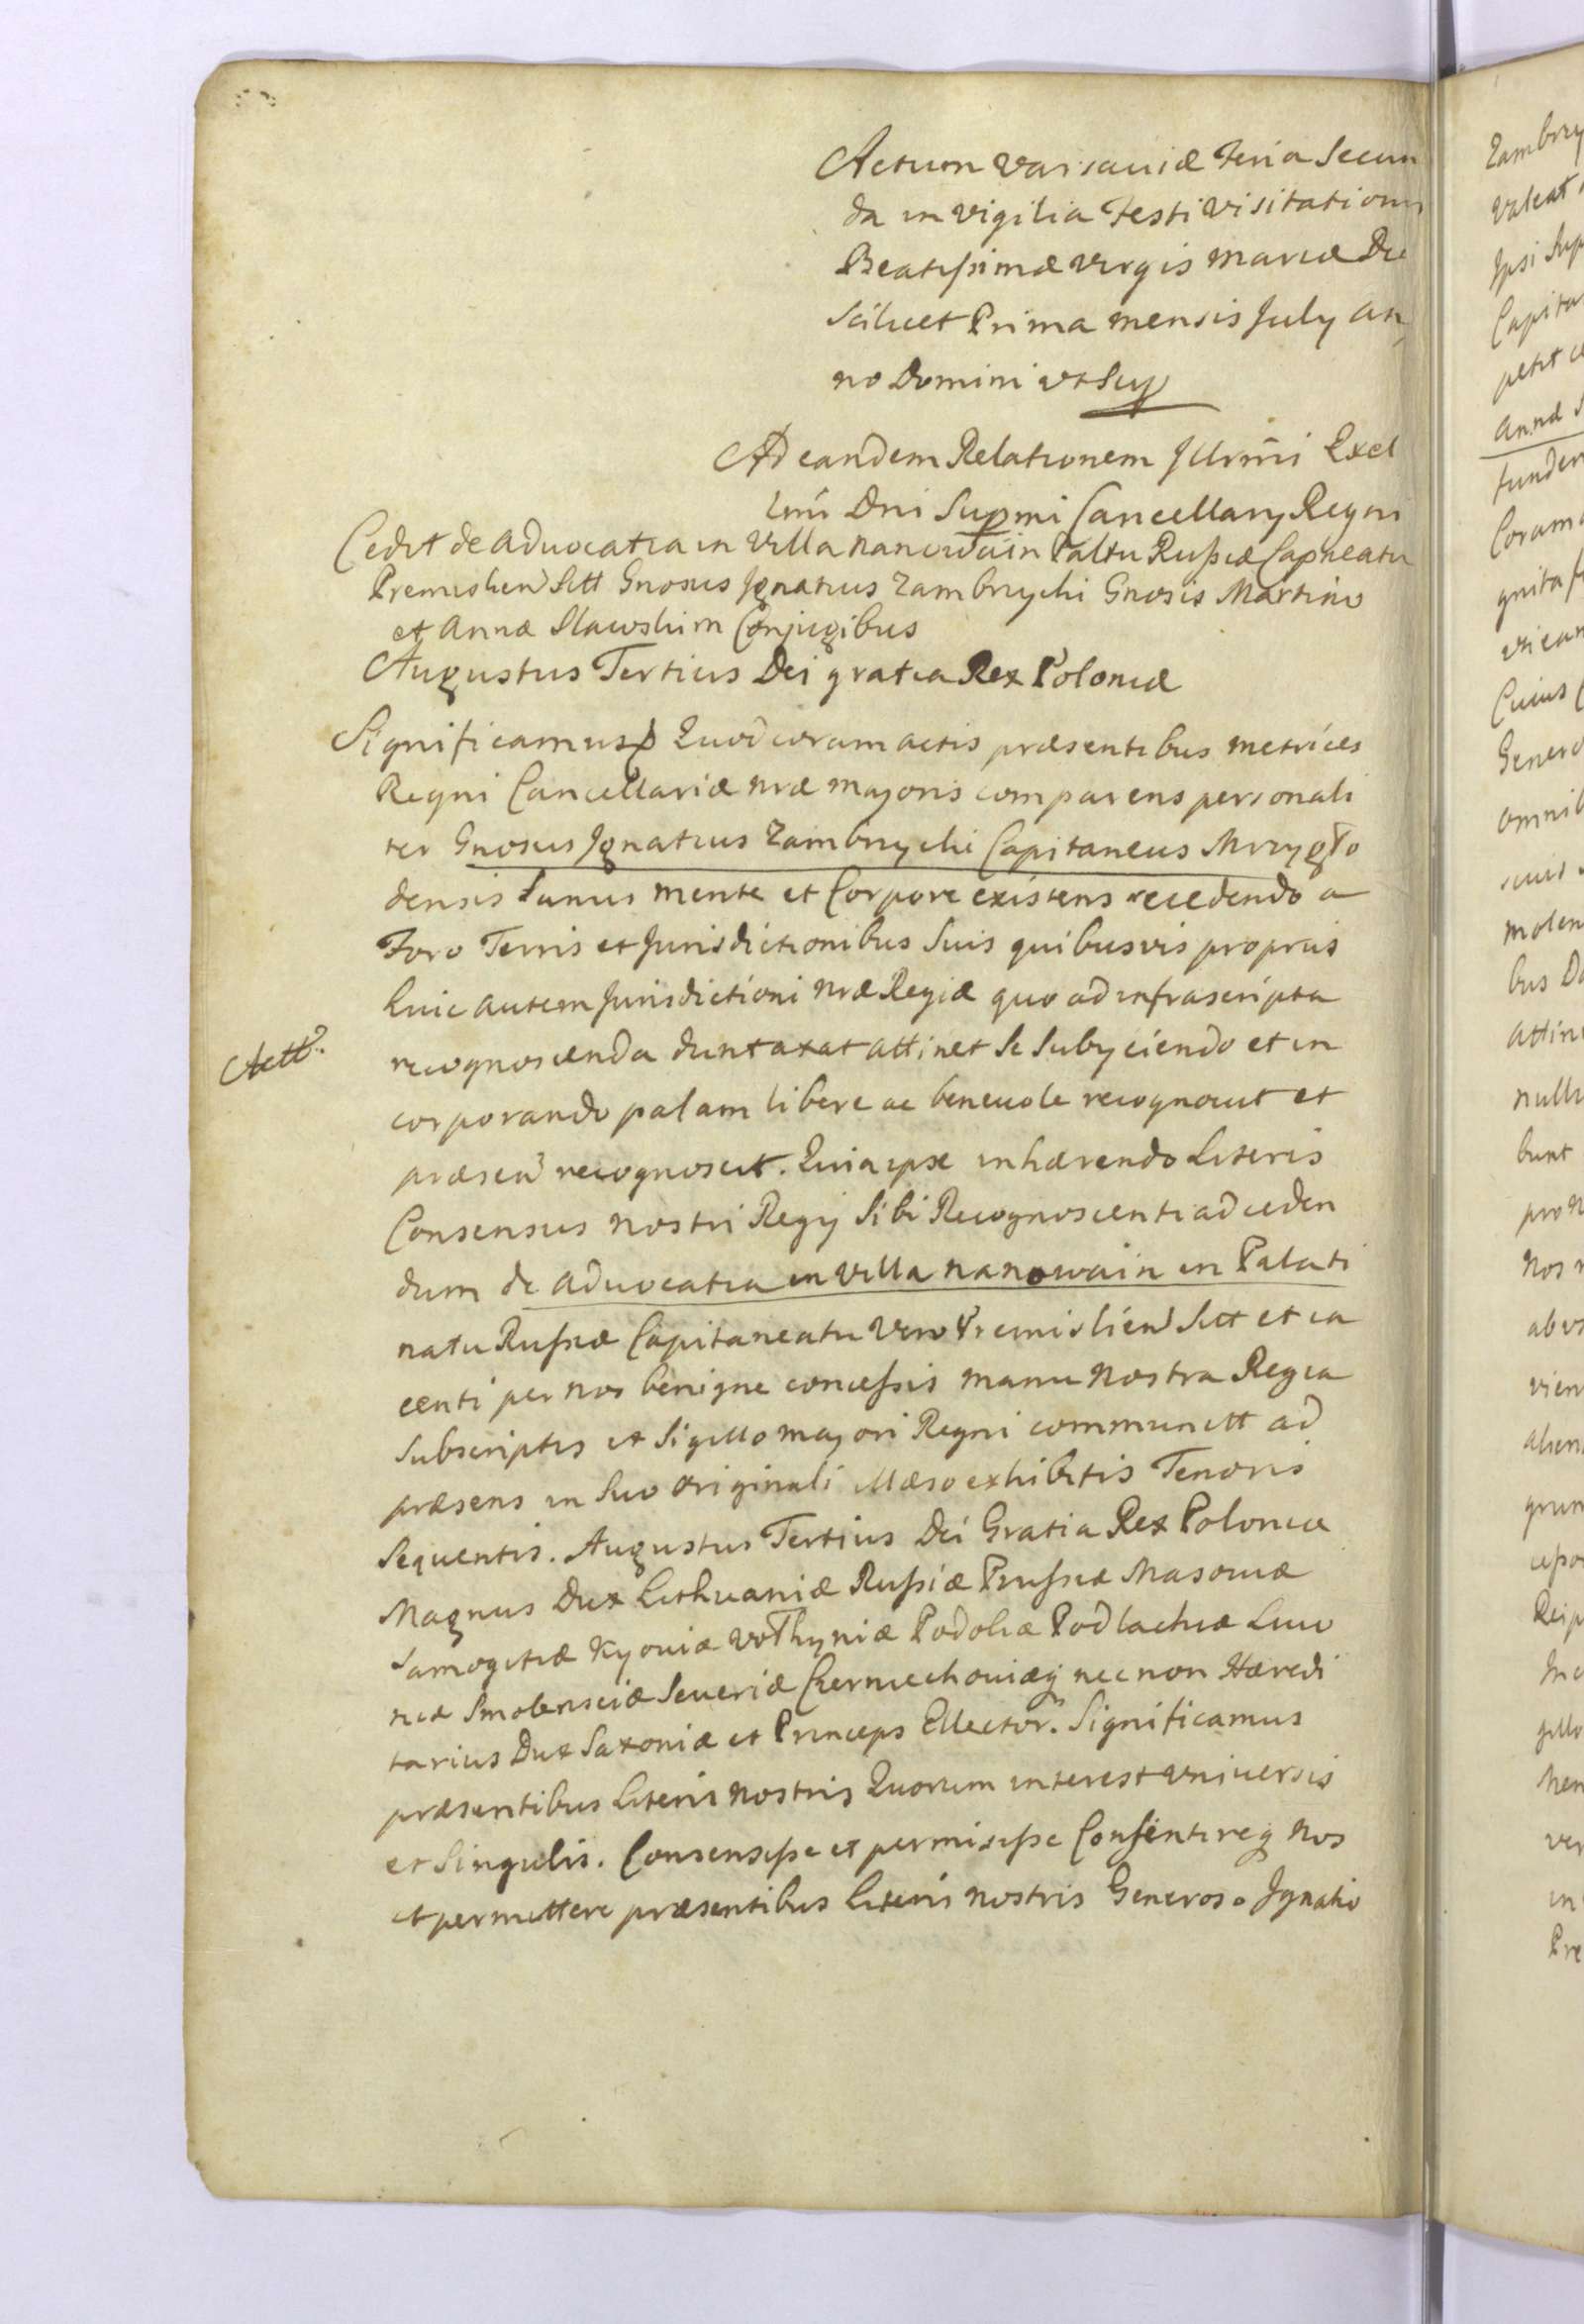 Actum Varsaviæ Feria Secun
da in vigilia Festi Visitationis
Beatissimæ Virgis Mariæ Die
Scilicet Prima mensis July an
no Domini ut Sup
Ad eandem Relationem Illrmi Excel
lmi Dni Supmi Cancellarij Regni
Cedit de Advocatia in Villa Nanowa in Paltu Russiæ Capneatu
Premislien Sitt Gnosus Ignatius Zambrzycki Gnosis Martino
et Annæ Slawskim Conjugibus
Augustus Tertius Dei gratia Rex Poloniæ
Significamus Quod coram actis præsentibus metrices
Regni Cancellariæ nræ majoris comparens personali
ter Gnosus Ignatius Zambrzycki Capitaneus Mrzygło
densis Sanus mente et Corpore existens recedendo a
Foro Terris et Jurisdictionibus Suis quibusvis proprijs
huic autem Jurisdictioni nræ Regiæ quo ad infrascripta
recognoscenda duntaxat attinet Se Subijciendo et in
corporando palam libere ac benevole recognovit et
præsen recognoscit. Quia ipse inhærendo Literis
Consensus nostri Regij Sibi Recognoscenti ad ceden
dum de advocatia in Villa Nanowa in in Palati
natu Russiæ Capitaneatu vero Premislien Sitt et ia
centi per nos benigne concessis manu nostra Regia
Subscriptis et Sigillo majori Regni communitt ad
præsens in Suo originali illæso exhibitis Tenoris
Sequentis. Augustus Tertius Dei Gratia Rex Poloniæ
Magnus Dux Lithuaniæ Russiæ Prussiæ Masoviæ
Samogitiæ Kyoviæ Vołhyniæ Podoliæ Podlachiæ Livo
niæ Smolensciæ Severiæ Czerniechoviæq necnon Hæredi
tarius Dux Saxoniæ et Princeps Ellector. Significamus
præsentibus Literis nostris Quorum interest universis
et Singulis. Consensisse et permisisse Consentireq nos
et permittere præsentibus Literis nostris Generoso Ignatio